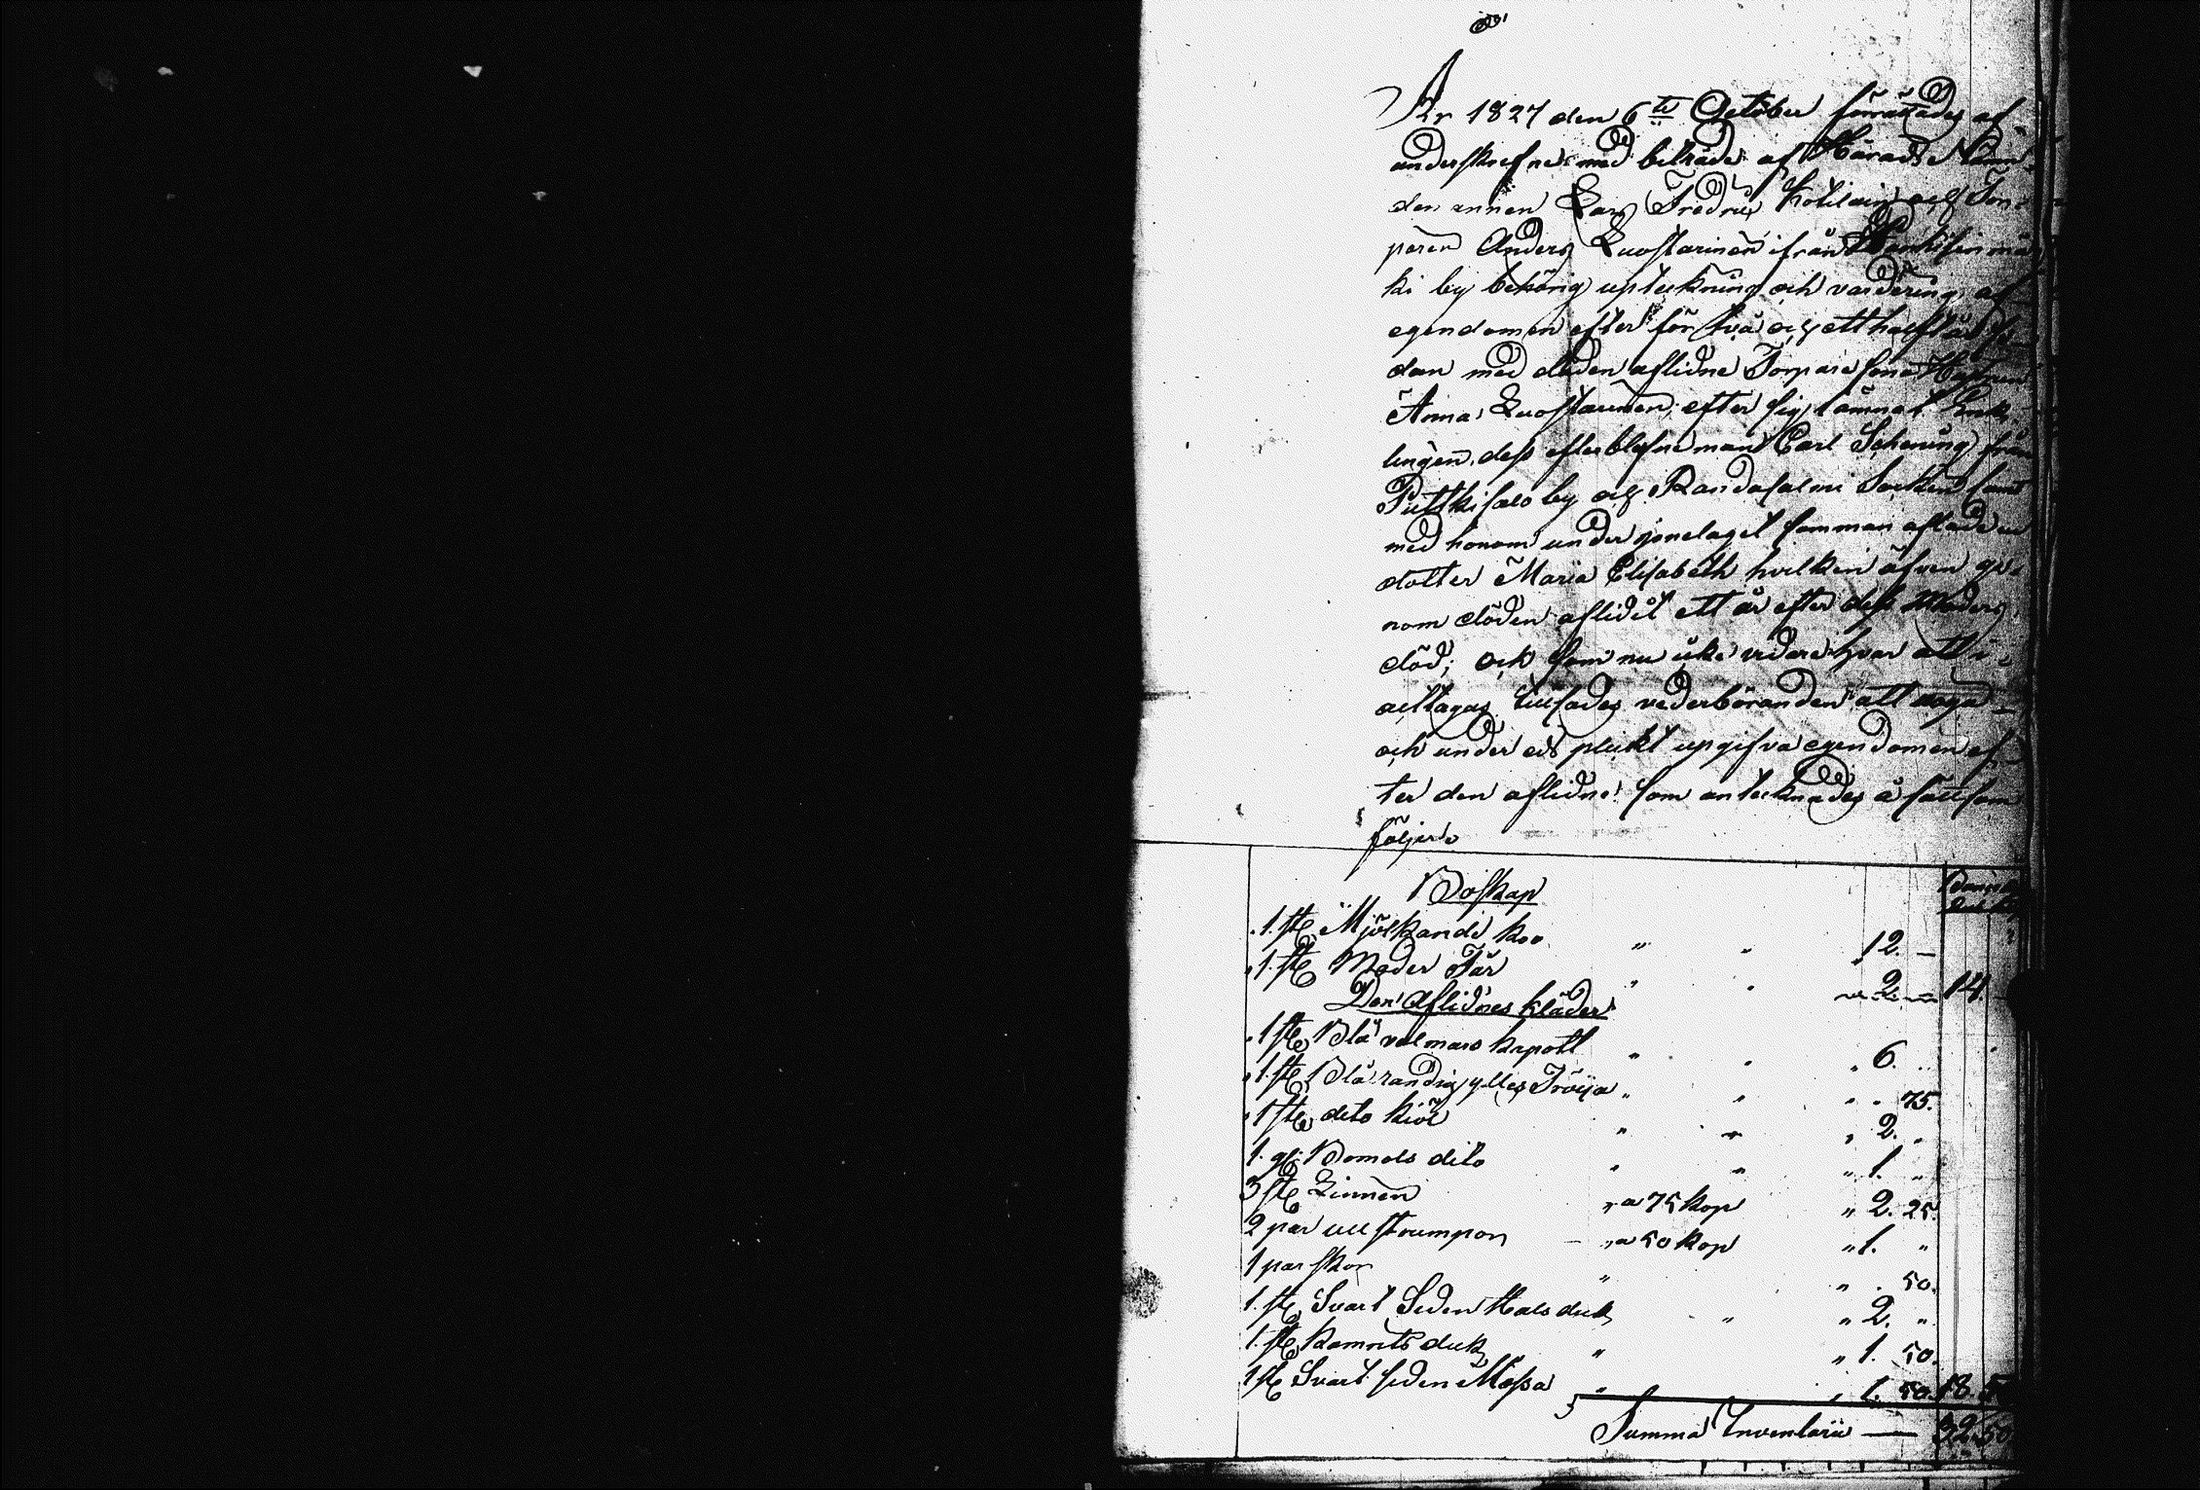 År 1827 den 6te October förrättades af
underskrefne med biträde af Härads
den annen Lars Fredric Kotilain och Tor-
paren Anders Luostarinen ifrån
ki by behörig upteckning och värdering af
egendomen efter för två och ett halft år se-
dan med döden aflidne Torpare sons Hustrun
Anna Luostarinen, efter sig lämnat Enk-
lingen dess efterblefne man Carl Schening från
Putkisalo by och Randasalmi Socken samt
med honom under gonelaget samman aflade en
dotter Maria Elisabeth hvilken äfven ge-
nom döden aflidit ett år efter dess Moders
död; och som nu icke vidare var att i-
acttagas tillsades vederböranden att noga
och under eds plickt upgifva egendomen ef-
ter den aflidne som antecknades å sätt som
följer
Boskap
1. st. Mjölkande ko " " 12. —
1. st. Moder Får " " 2. — 14. —
Den Aflidnes kläder
1 st. Blå valmars kapott " " 6. "
1. st. Blå randig ylles Tröija " " " 75.
1 st. dito kiol " " 2. "
1. gl. Bomuls dito " " 1. "
3 st. Linnen " a 75 kop " 2. 25.
2 par ull strumpor — " a 50 kop " 1. "
1 par skor " " . 50.
1. st. Svart Siden Halsduk " " 2. "
1. st. Kamrits duk " " 1. 50.
1 st. Svart siden Mössa " " 1. 50. 18. 50
Summa Inventarii — 32. 50